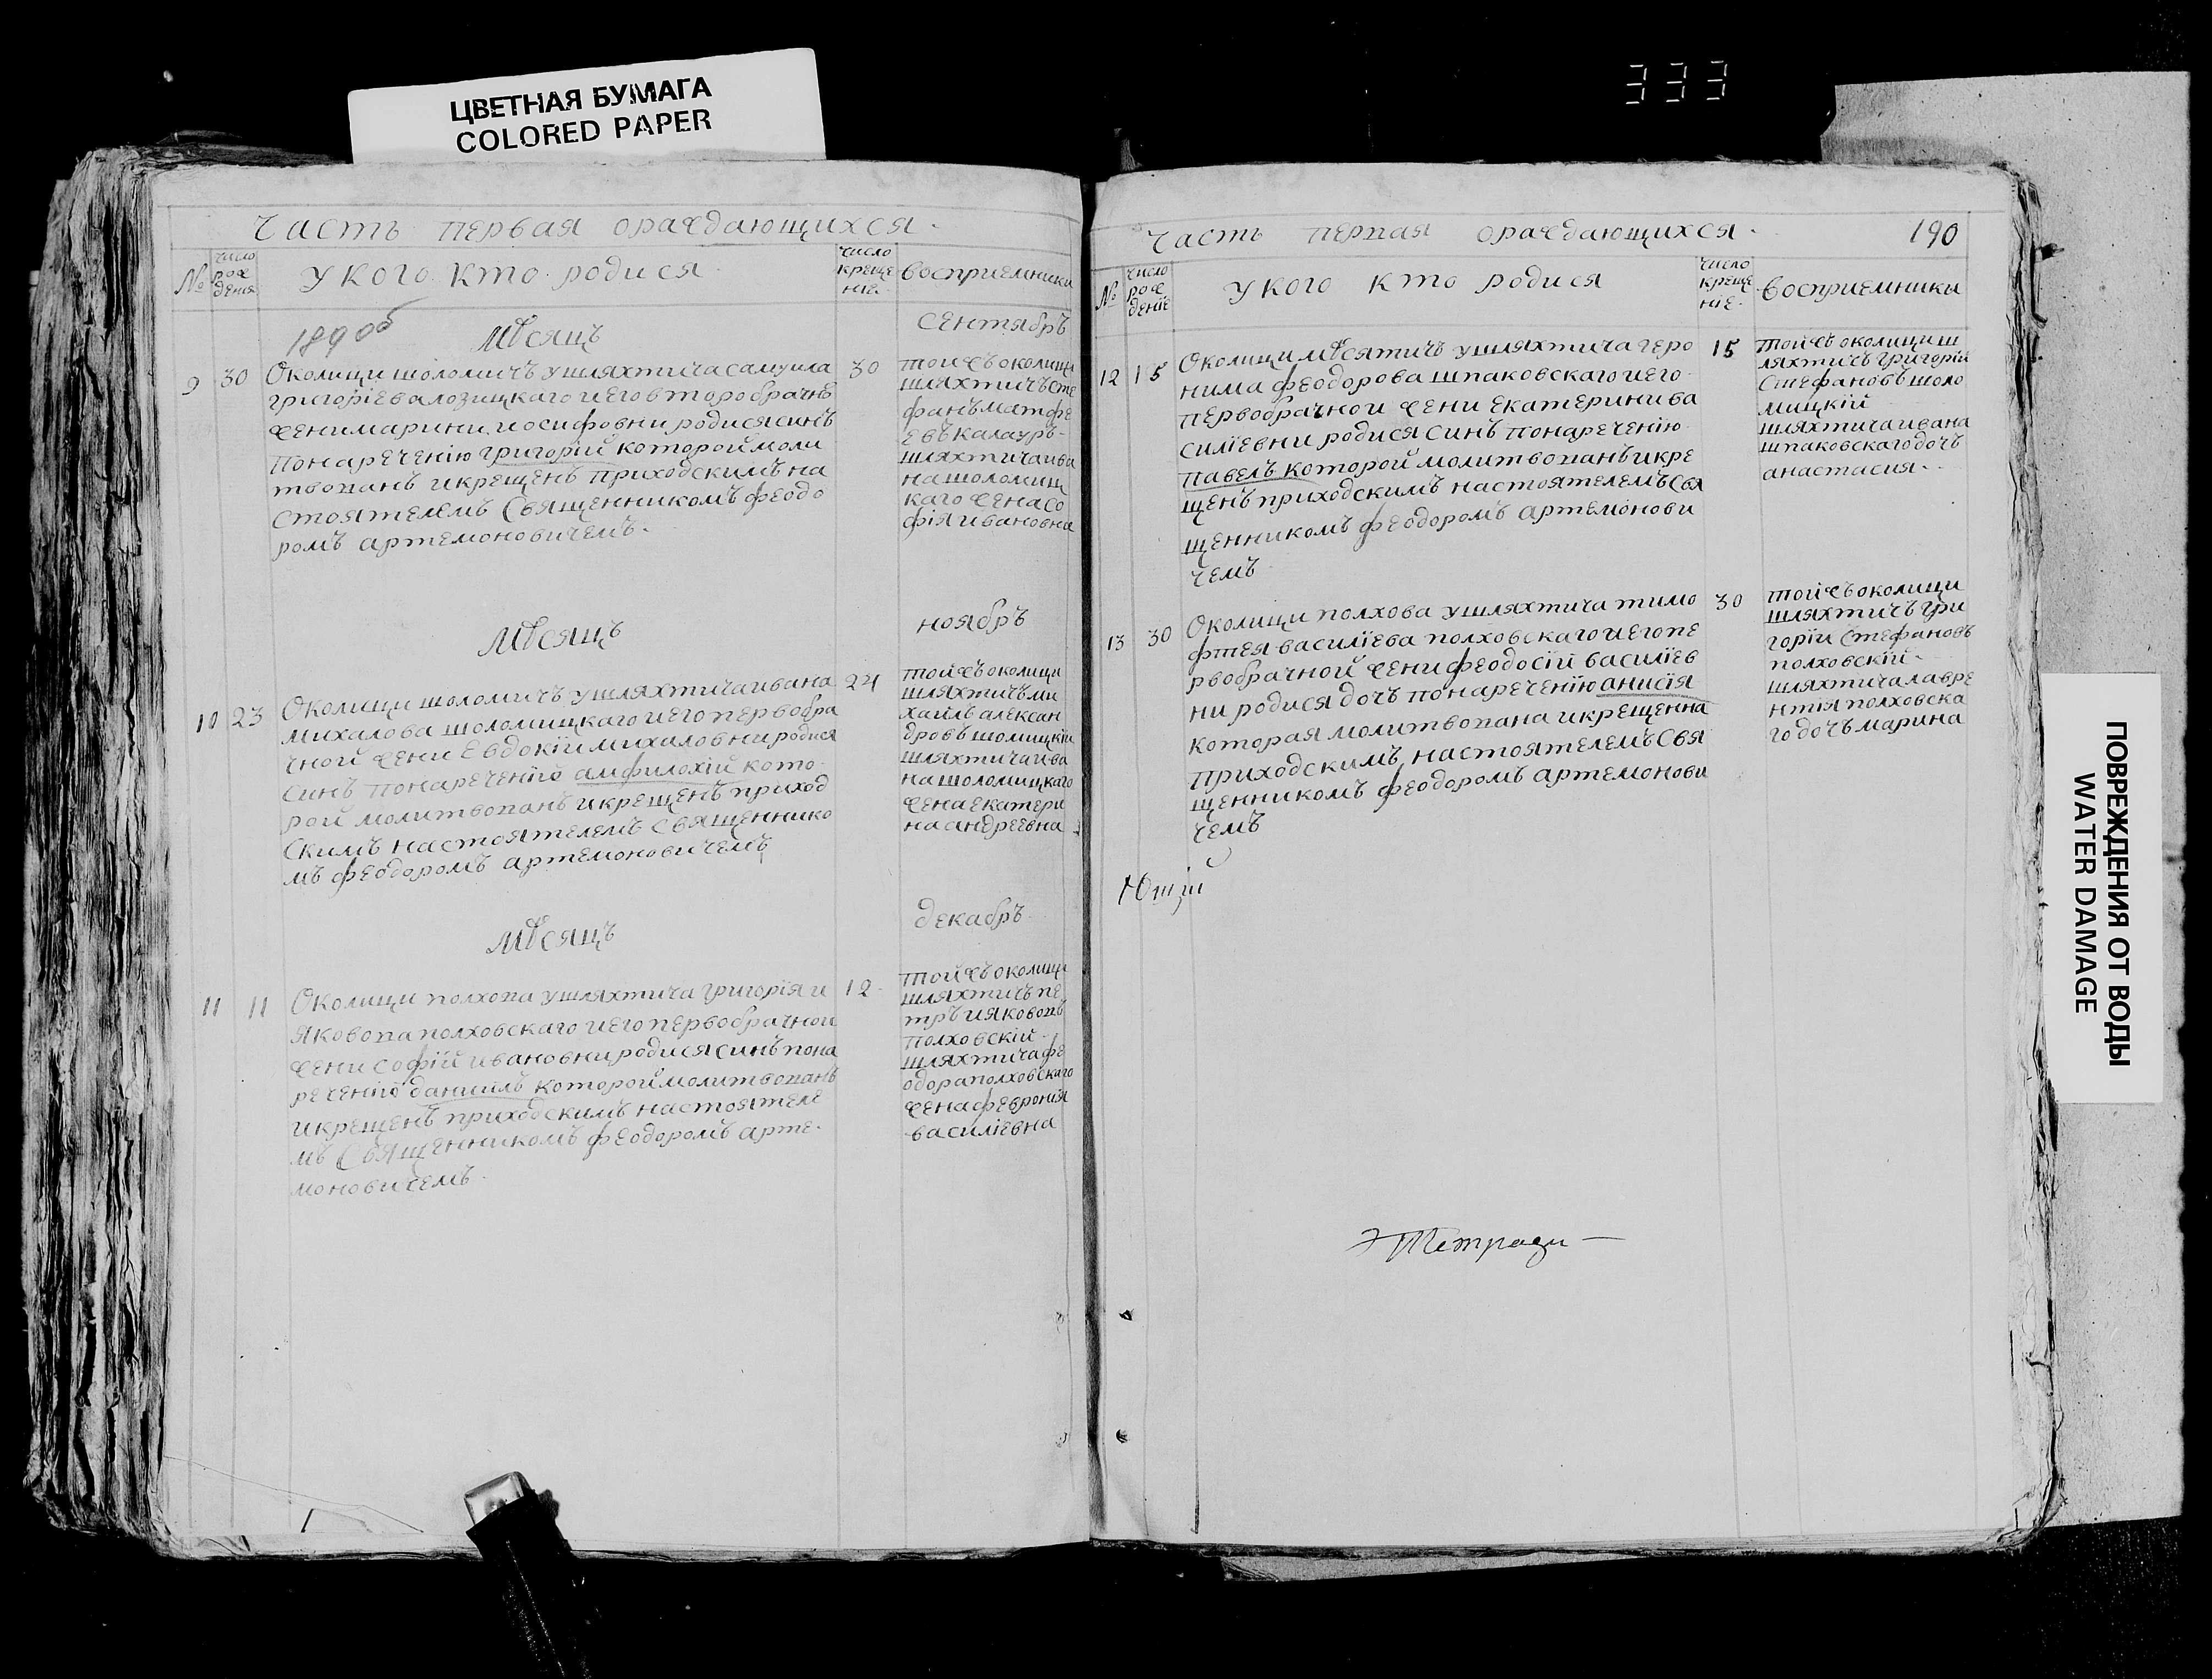 ЦВЕТНАЯ БУМАГА
COLORED PAPER
333
Часть первая ораждающихся.
№
число рождения
У кого кто родися
число крещение
восприемники
189 об
Мѣсяцъ
сентябрь
9
30
Околици шоломичъ у шляхтича самуила
григоріева лозицкаго и его второбрачнѣ
жени марини иосифовни родися синъ
по наречению григорій которой моли
твованъ и крещенъ приходскимъ на
стоятелемъ священникомъ феодо
ромъ артемоновичемъ.
30
той жъ околици
шляхтичъ сте
фанъ матфе
евъ калауръ-
шляхтича ива
на шоломиц
каго жена со
фія ивановна
Мѣсяцъ
ноябръ
10
23
Околици шоломичъ у шляхтича ивана
михалова шоломицкаго и его первобра
чной жени Евдокіи михаловни родися
синъ по нареченію амфилохій кото
рой молитвованъ и крещенъ приход
скимъ настоятелемъ священнико
мъ феодоромъ артемоновичемъ
24
той жъ околици
шляхтичъ ми
хаилъ алексан
дровъ шоломицкій
шляхтича ива
на шоломицкаго
жена екатери
на андреевна
Мѣсяцъ
декабръ
11
11
Околици полхова у шляхтича григорія и
яковова полховскаго и его первобрачнои
жени софіи ивановни родися синъ по на
реченію данііль которой молитвованъ
и крещенъ приходскимъ настоятеле
мъ священникомъ феодоромъ арте.
моновичемъ.
12
той жъ околици
шляхтичъ пе
тръ ияковов
полховскій
шляхтича фе
одора полховскаго
жена феврония
василіевна
Часть первая ораждающихся.
190
№
число рожденіе
У кого кто родися
число крещение.
восприемники
12
15
Околици мѣсятичъ у шляхтича геро
нима феодорова шпаковскаго и его
первобрачной жени екатерини ва
силіевни родися синъ по наречению
павелъ которой молитвованъ и кре
щенъ приходскимъ настоятелемъ свя
щенникомъ феодоромъ артемонови
чемъ
15
той жъ околици ш
ляхтичъ григорій
Стефановъ шоло
мицкій
шляхтича ивана
шпаковскаго дочъ
анастасия.
13
30
Околици полхова у шляхтича тимо
фтея василіева полховскаго и его пе
рвобрачной жени феодосій василіев
ни родися дочъ по нареченію анисія
которая молитвована и крещенна
приходскимъ настоятелемъ свя
щенникомъ феодоромъ артемонови
чемъ
30
той жъ околици
шляхтичъ гри
горіи Стефановъ
полховскій.
шляхтича лавре
нтія полховска
го дочъ марина
Тетради
ПОВРЕЖДЕНИЯ ОТ ВОДЫ
WATER DAMAGE